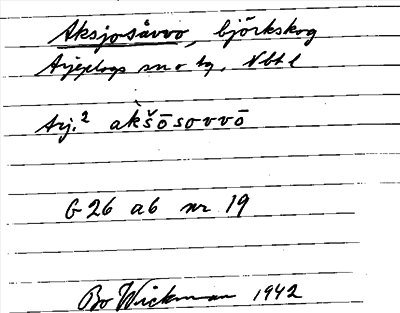 Aksjosåvvo, björkskog
Arjeplogs sn o tg. Vbtl
Arj.² akšōsovvō
G 26 ab nr 19
Bo Wickman 1942